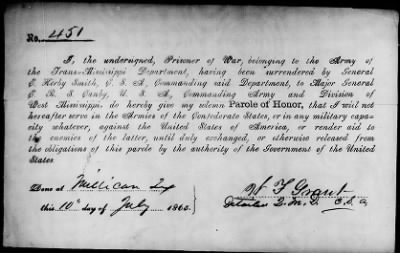 No. 451
I, the undersigned, Prisoner of War, belonging to the Army of
the Trans-Mississippi Department, having been surrendered by General
E. Kerby Smith, C. S. A., Commanding said Department, to Major General
E. R. S. Canby, U. S. A., Commanding Army and Division of
West Mississippi, do hereby give my solemn Parole of Honor, that I will not
hereafter serve in the Armies of the Confederate States, or in any military capa-
city whatever, against the United States of America, or render aid to
the enemies of the latter, until duly exchanged, or otherwise released from
the obligations of this parole by the authority of the Government of the United
States.
Done at Millican Tx
this 10th day of July 1865.
W F Grant
Detailed Q. M. D. C.S.A.